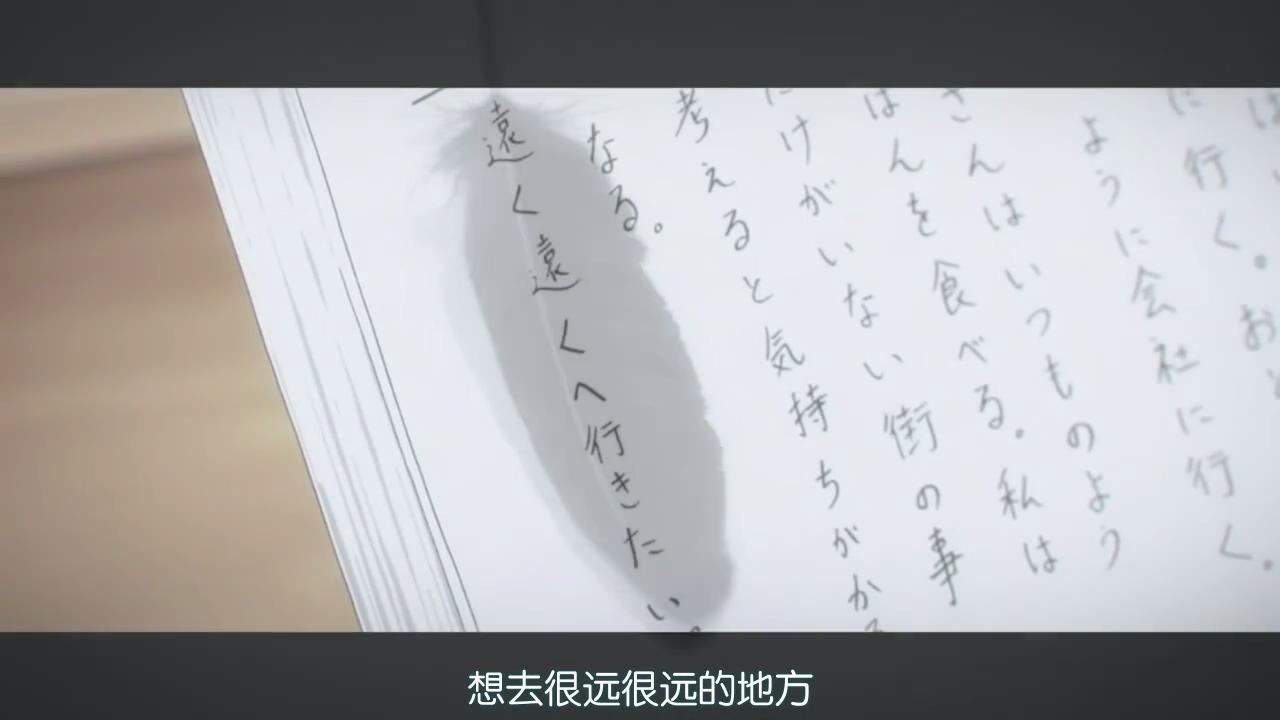 に行く。おと
ように会社に行く。
さんはいつものよう
はんを食べる。私は
だけがいない街の事
考えると気持ちがかる
なる。
遠く遠くへ行きたい。
想去很远很远的地方